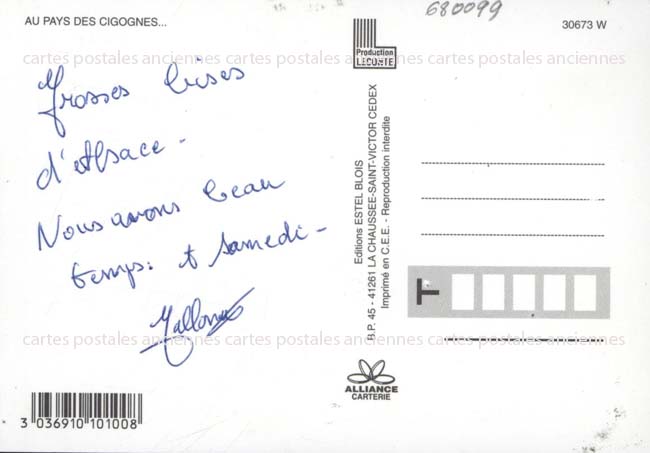 AU PAYS DES CIGOGNES...
680099
30673 W
Production
LECONTE
cartes postales anciennes cartes postales anciennes cartes postales anciennes
Grosses bises
d'Alsace -
Nous avons beau
temps: et samedi -
Editions ESTEL BLOIS
B.P. 45 - 41261 LA CHAUSSEE-SAINT-VICTOR CEDEX
Imprimé en C.E.E. - Reproduction interdite
T
cartes postales anciennes cartes postales anciennes cartes postales anciennes
ALLIANCE
CARTERIE
3 036910 101008